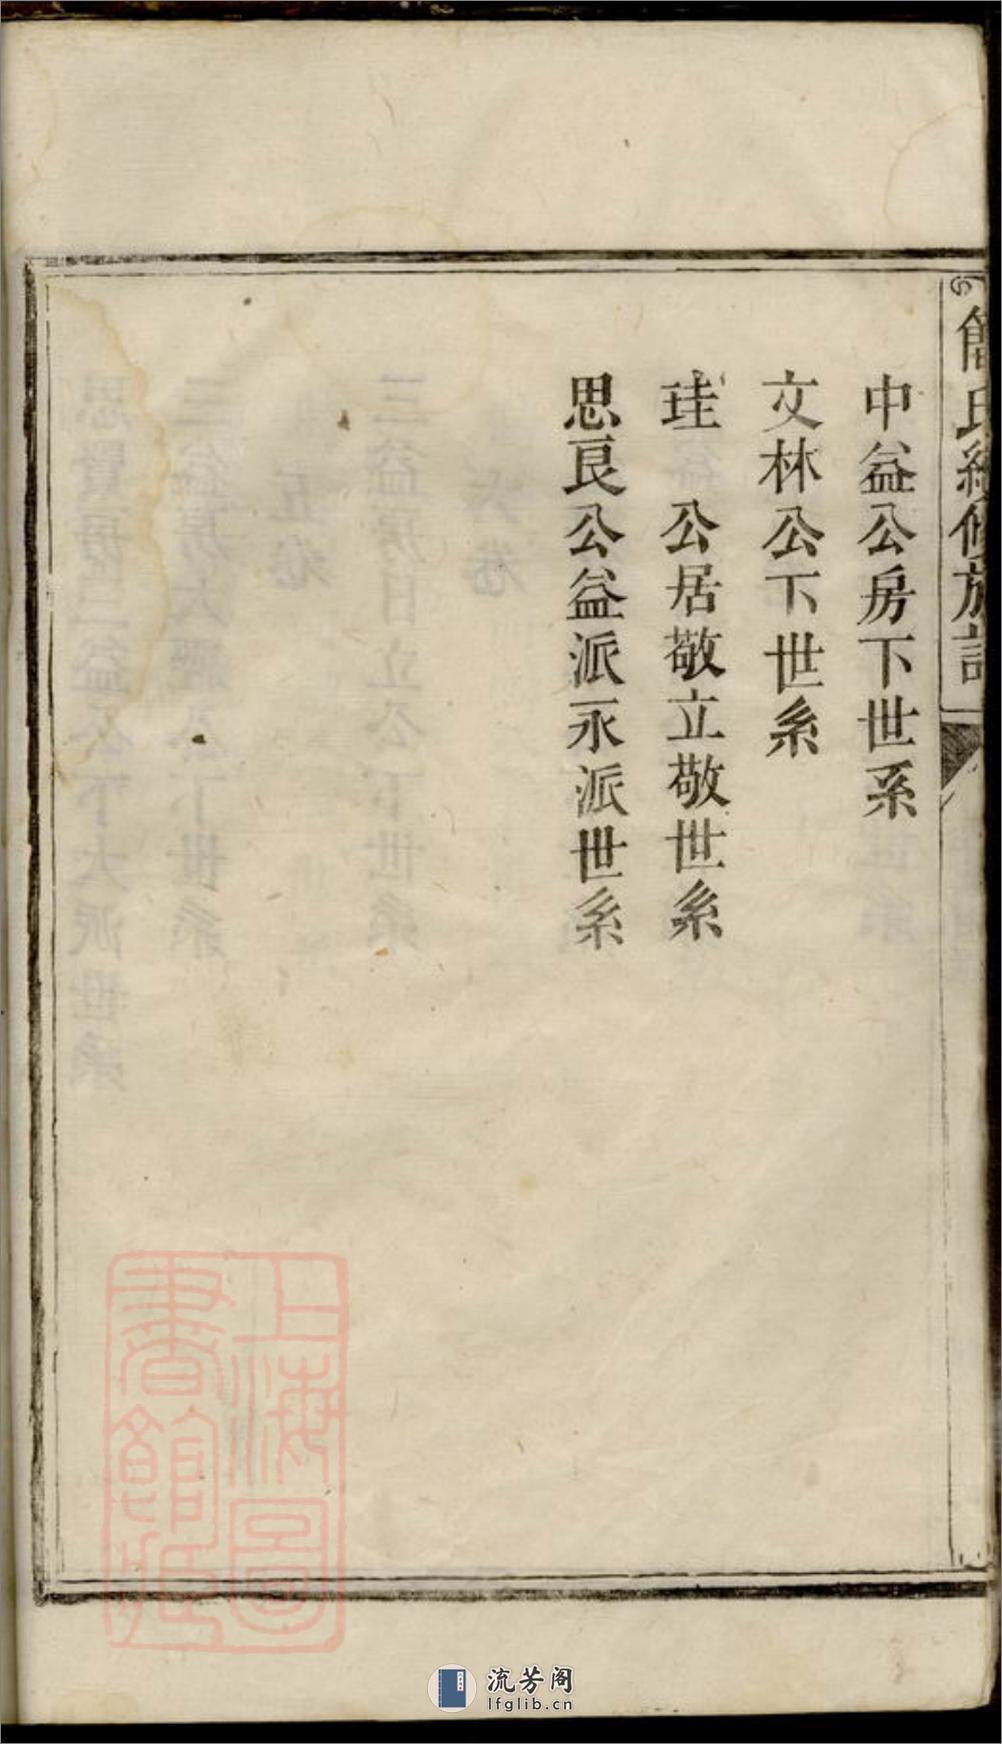 簡氏續修族譜
中益公房下世系
文林公下世系
珪　公居敬立敬世系
思良公益派永派世系
上海圖書館藏
流芳阁
lfglib.cn